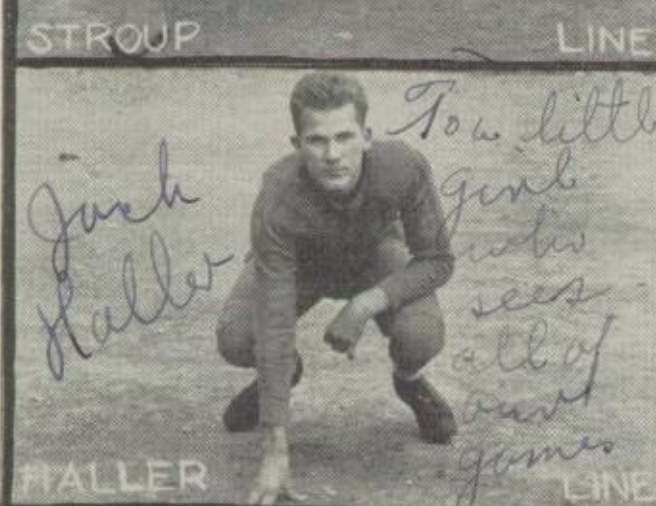 STROUP LINE
Jack
Haller
To a little
girl
who
sees
all of
our
games
HALLER LINE